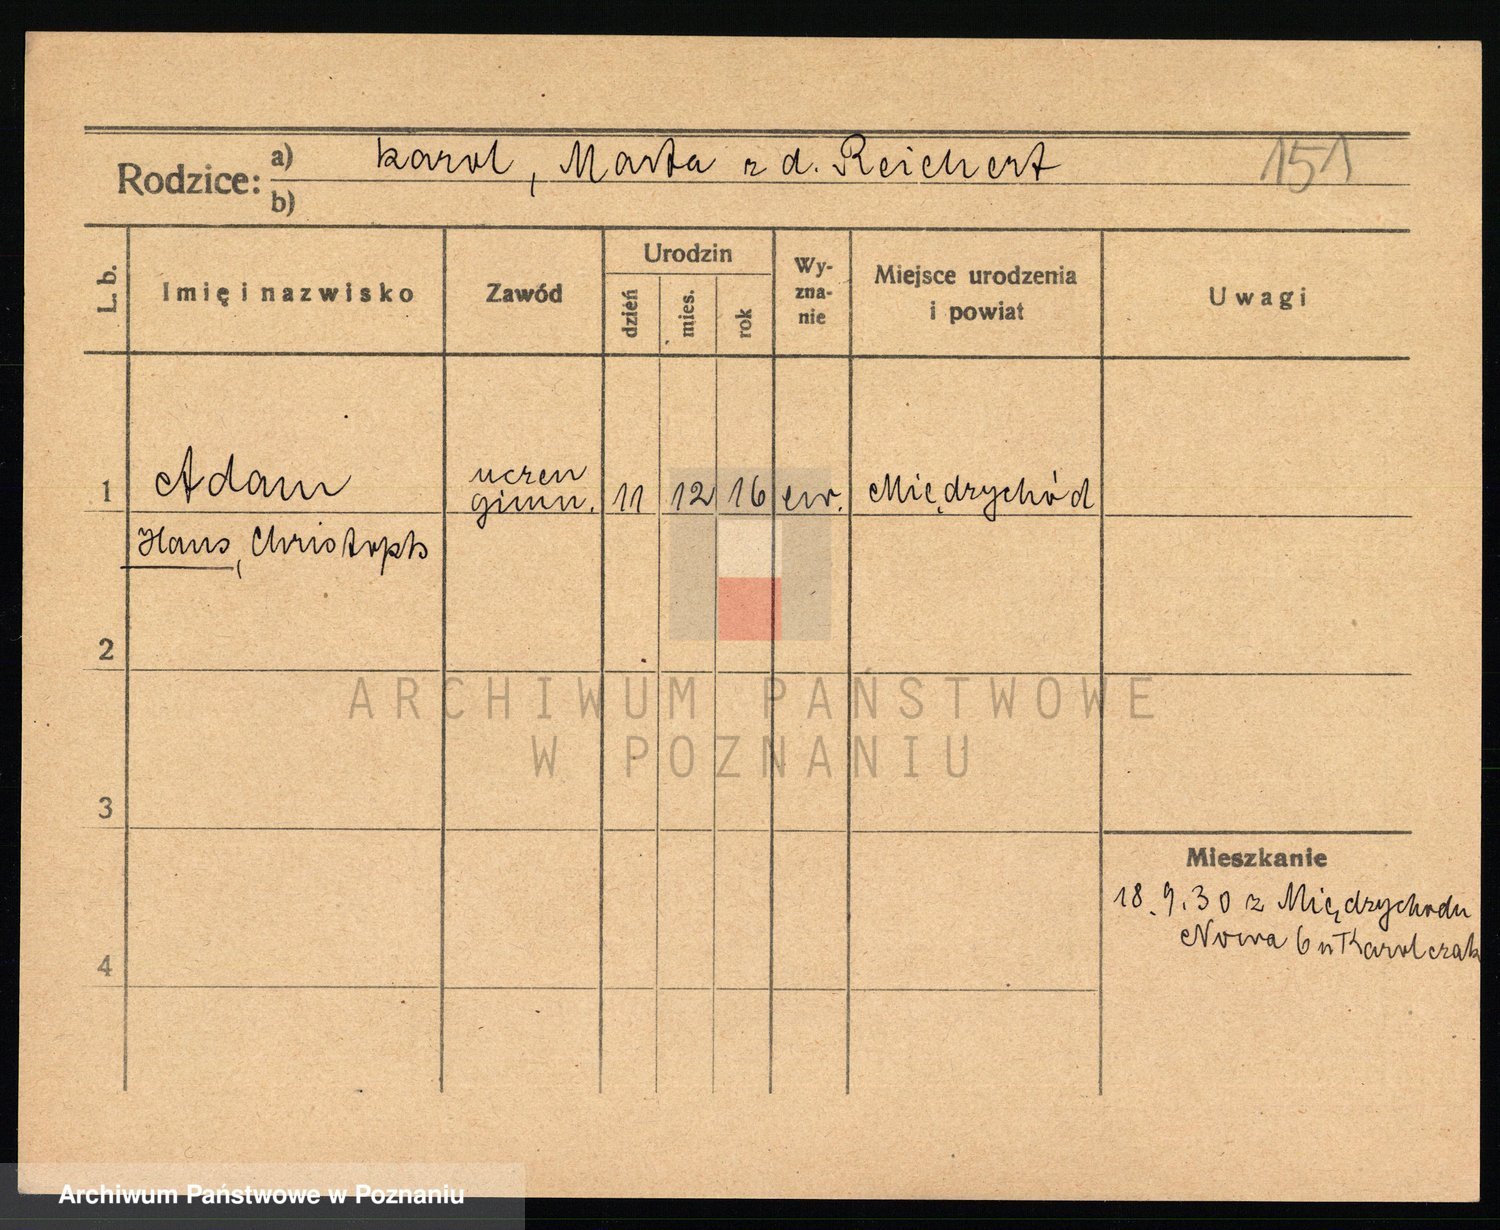 Rodzice: a) Karol, Marta z d. Reichert 151
b)
L. b. Imię i nazwisko Zawód Urodzin dzień mies. rok Wy-zna-nie Miejsce urodzenia i powiat Uwagi
1 Adam uczeń gimn. 11 12 16 ew. Międzychód
Hans, Christoph
2
ARCHIWUM PAŃSTWOWE
W POZNANIU
3
Mieszkanie
18.9.30 z Międzychodu
Nowa 6 u Karolczak
4
Archiwum Państwowe w Poznaniu